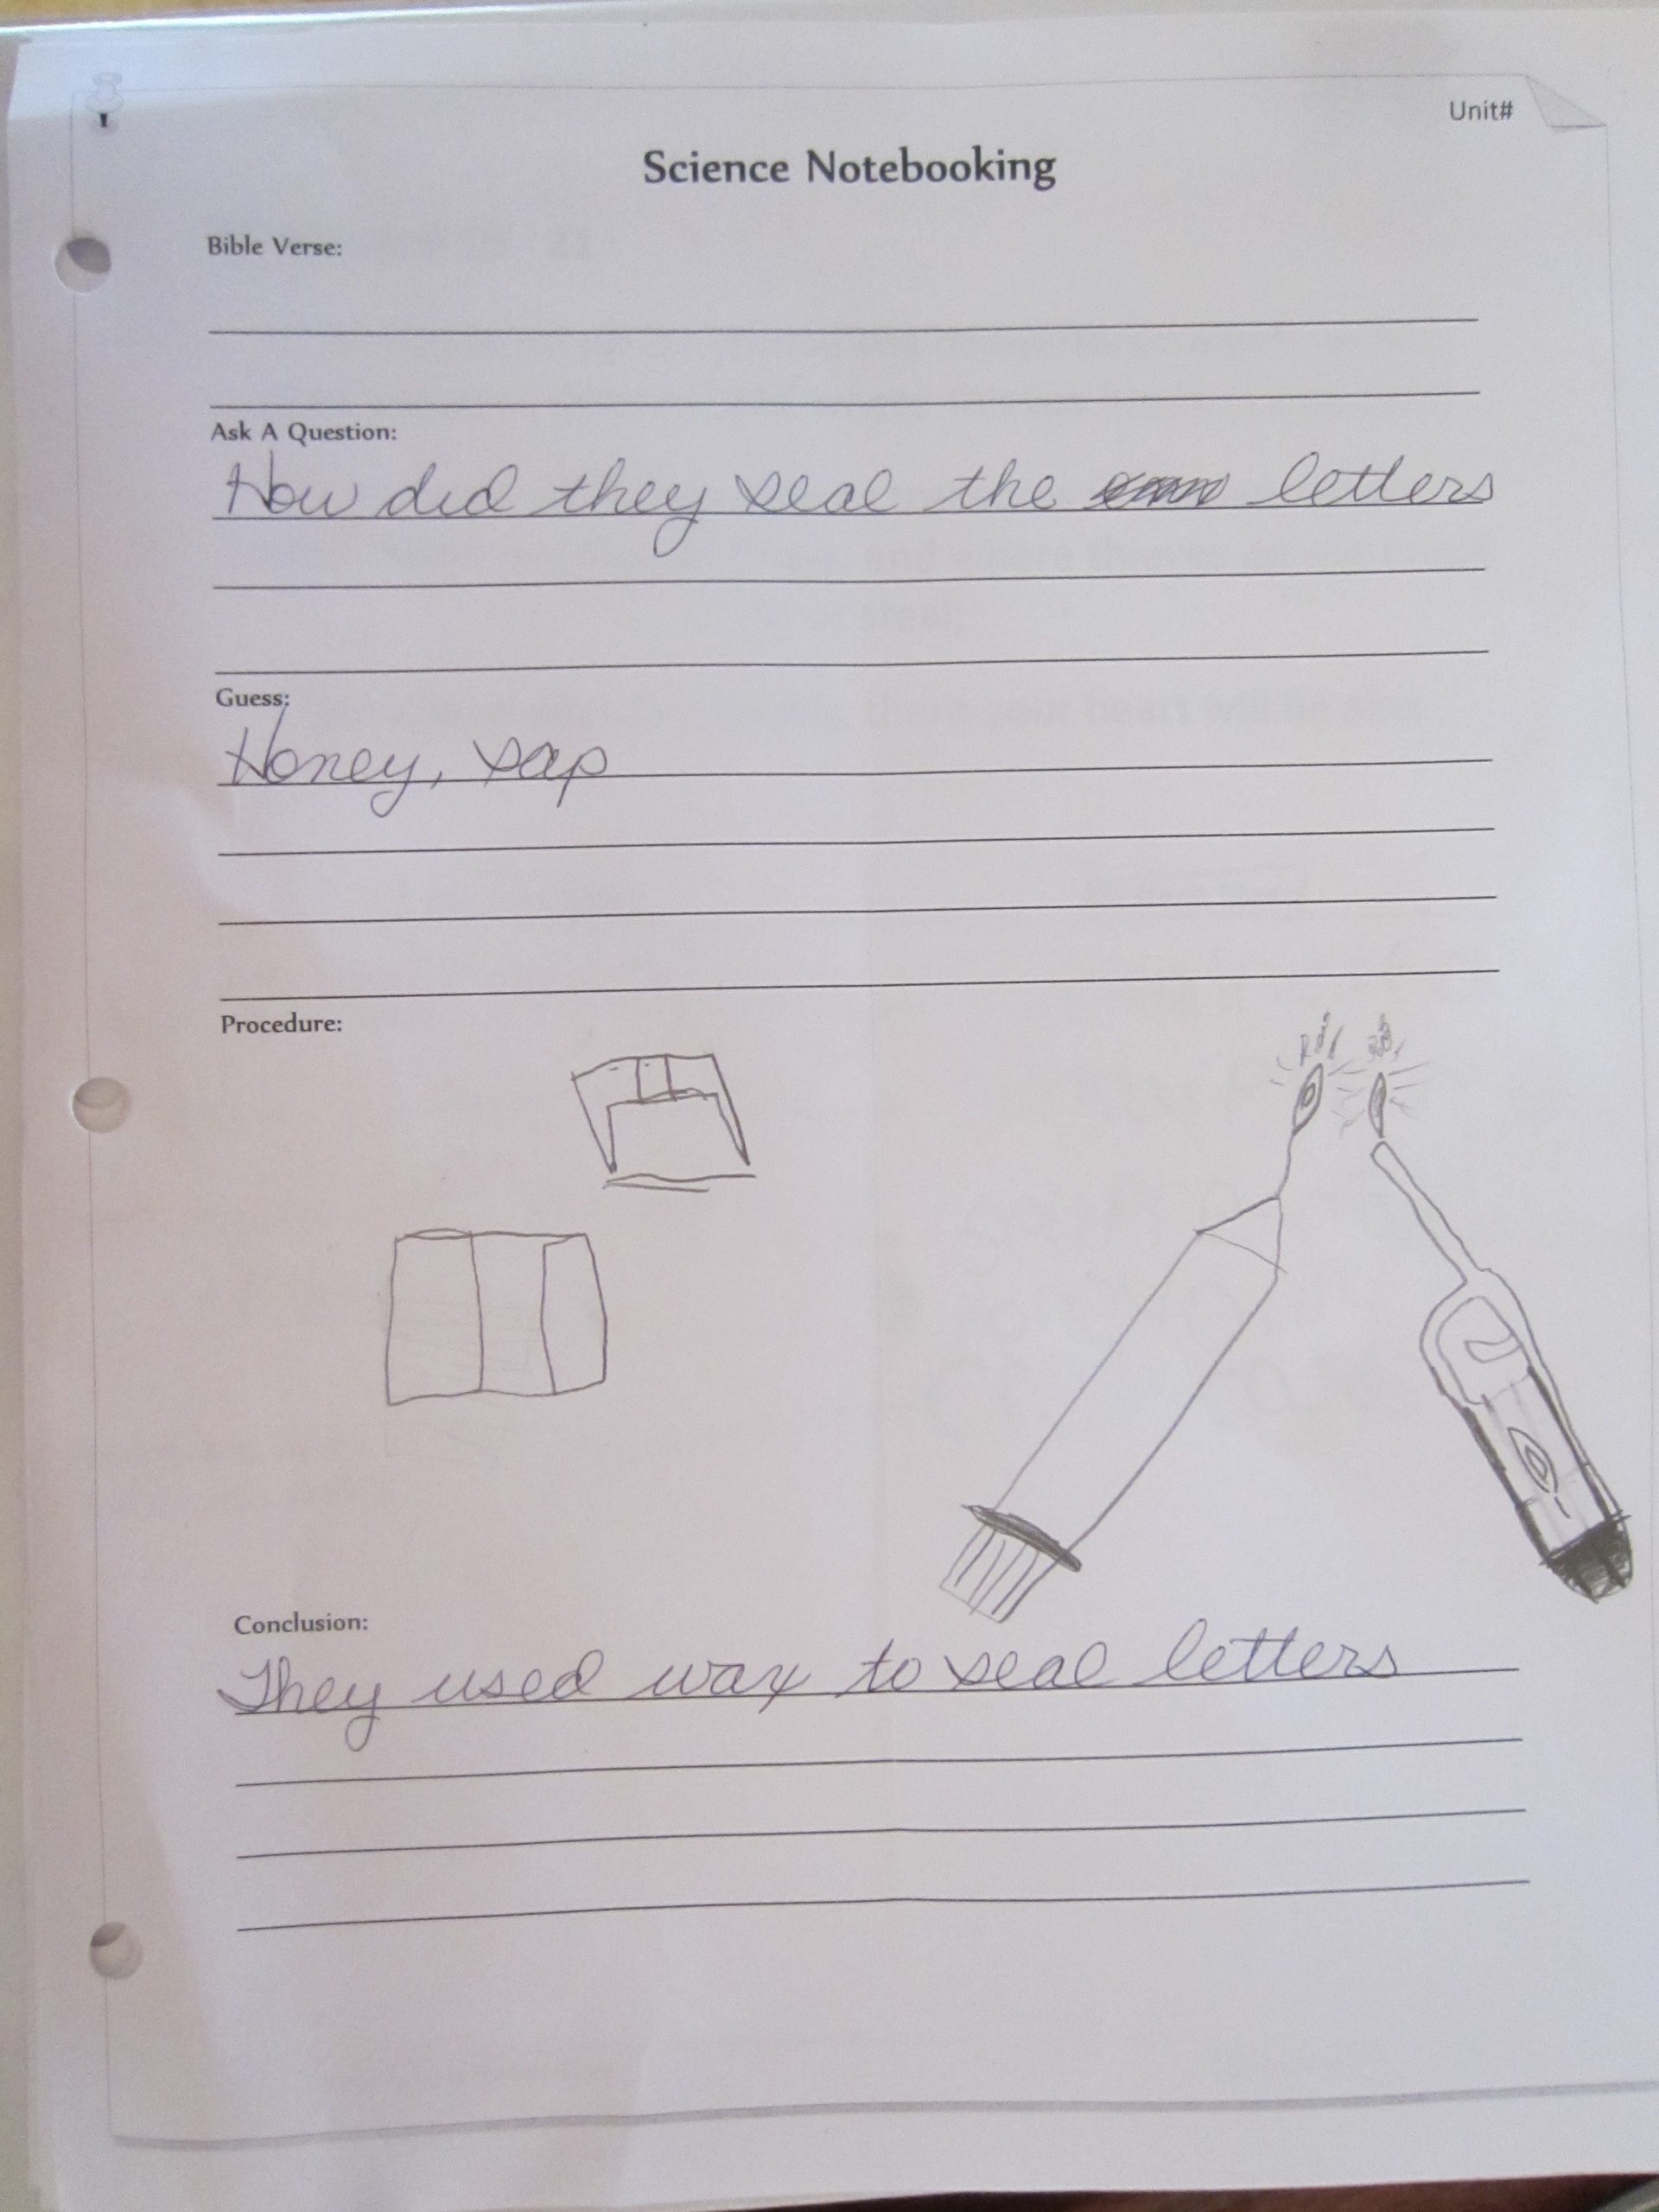 Unit#
Science Notebooking
Bible Verse:
Ask A Question:
How did they seal the letters
Guess:
Honey, sap
Procedure:
Conclusion:
They used wax to seal letters